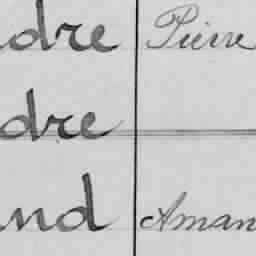 dre Pierre
dre
and Aman